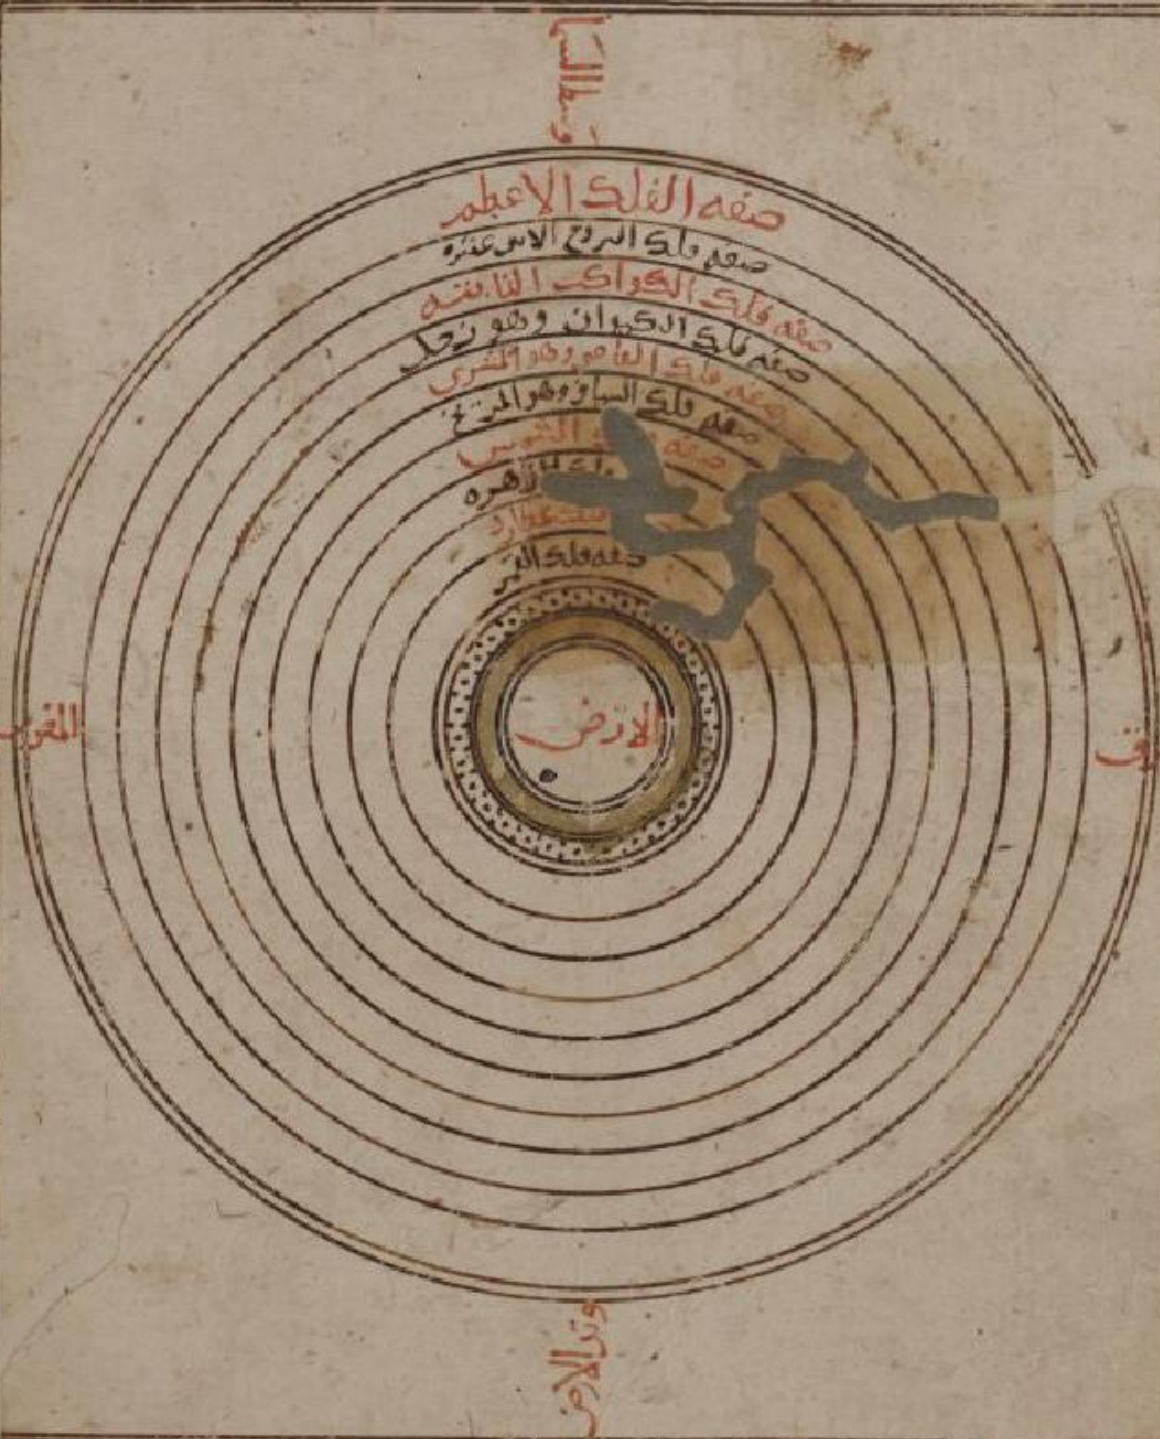 وسط السما
صفه الفلك الاعظم
صفه فلك البروج الاثنى عشره
صفه فلك الكواكب الثابته
صفه فلك الكيوان وهو زحل
صفه فلك القاضى وهو المشترى
صفه فلك السياف وهو المريخ
صفه الشمس
فلك الزهره
فلك عطارد
صفه فلك القمر
المغرب
الارض
وتد الارض